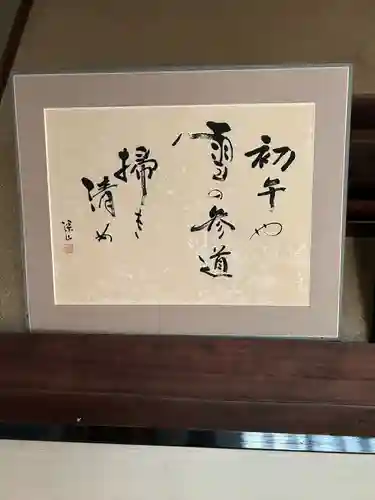 初午や
雪の参道
掃き
清め